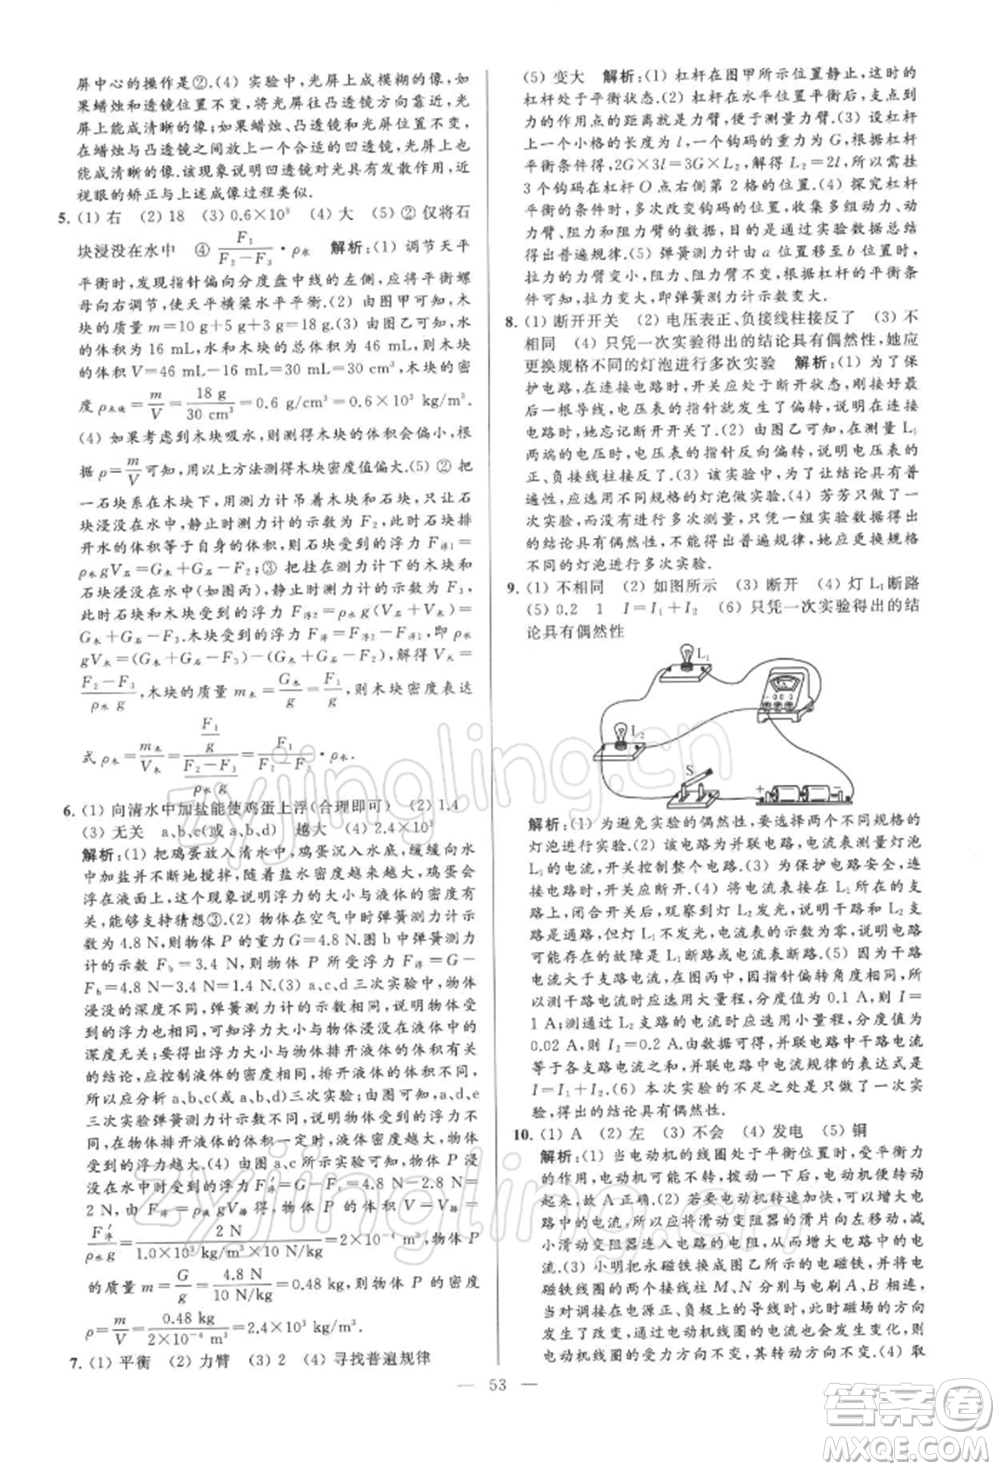 屏中心的操作是②.(4) 实验中,光屏上成模糊的像,如
果蜡烛和透镜位置不变,将光屏往凸透镜方向靠近,光
屏上能成清晰的像;如果蜡烛、凸透镜和光屏位置不变,
在蜡烛与凸透镜之间放上一个合适的凹透镜,光屏上
能成清晰的像.该现象说明凹透镜对光具有发散作用,近
视眼的矫正与上述成像过程类似.
5. (1) 右 (2) 18 (3) 0.6×10³ (4) 大 (5) ② 仅将石
块浸没在水中 ④ F₁/(F₂−F₃)·ρ水 解析:(1) 调节天平
平衡时,发现指针偏向分度盘中线的左侧,应将平衡螺
母向右调节,使天平横梁水平平衡.(2) 由图甲可知,木
块的质量 m=10 g+5 g+3 g=18 g.(3) 由图乙可知,水
的体积为 16 mL,水与木块的总体积为 46 mL,则木块的
体积 V=46 mL−16 mL=30 mL=30 cm³,木块的密
度 ρ木块=m/V=18 g/30 cm³=0.6 g/cm³=0.6×10³ kg/m³.
(4) 如果考虑到木块吸水,则测得木块的体积会偏小,根
据 ρ=m/V可知,用以上方法测得木块密度值偏大.(5) ② 把
一石块系在木块下,用测力计吊着木块和石块,仅使石
块浸没在水中,静止时测力计的示数为 F₂,此时石块排
开水的体积等于自身的体积,石块受到的浮力 F浮1=
ρ水gV石=G木+G石−F₂;③ 把挂在测力计下的木块和
石块浸没在水中(如图丙),静止时测力计的示数为 F₃,
此时木块、石块受到的浮力 F浮2=ρ水g(V木+V石)=
G木+G石−F₃.木块受到的浮力 F浮=F浮2−F浮1,即 ρ水
gV木=(G木+G石−F₃)−(G木+G石−F₂),解得 V木=
(F₂−F₃)/(ρ水g),木块的质量 m木=G木/g=F₁/g,木块密度表达
式 ρ木=m木/V木=(F₁/g)/((F₂−F₃)/(ρ水g))=F₁/(F₂−F₃)·ρ水.
6. (1) 向清水中加盐能使鸡蛋上浮(合理即可) (2) 1.4
(3) 无关 a、b、c(或 a、b、d) 越大 (4) 2.4×10³
解析:(1) 把鸡蛋放入清水中,鸡蛋沉入水底,缓缓向水
中加盐并不断地搅拌,随着盐水密度越来越大,鸡蛋会
浮在液面上,这个现象说明浮力大小与液体的密度有
关,能够支持猜想③.(2) 物体在空气中时弹簧测力计示
数为 4.8 N,则物体 P 的重力 G=4.8 N.图 b 中弹簧测力
计的示数 Fb=3.4 N,则物体 P 所受浮力 F浮=G−
Fb=4.8 N−3.4 N=1.4 N.(3) 三次实验中,物体浸没在
液体的深度不同,弹簧测力计的示数相同,则物体受
到的浮力相同,可知浮力大小与物体浸没在液体中的
深度无关;要得出浮力大小与液体的密度有关的结
论,应控制液体的密度不同,排开液体的体积相同,
所以应分析 a、b、c(或 a、b、d)三次实验.由 a、d、e
三次实验弹簧测力计示数不同,说明物体受到的浮力不同,
在液体密度一定时,物体排开液体的体积越大,物体受
到的浮力越大.(4) 分析 a、c 两图可知,物体 P 浸没在
水中,受到的浮力 F′浮=G−Fc=4.8 N−2.8 N=
2 N,由 F浮=ρ水gV排 得,物体 P 的体积 V=V排=
F′浮/(ρ水g)=2 N/(1.0×10³ kg/m³×10 N/kg)=2×10⁻⁴ m³,物体 P
的质量 m=G/g=4.8 N/10 N/kg=0.48 kg,则物体 P 的密度
ρ=m/V=0.48 kg/2×10⁻⁴ m³=2.4×10³ kg/m³.
7. (1) 平衡 (2) 力臂 (3) 2 (4) 寻找普遍规律
(5) 变大 解析:(1) 杠杆在图甲所示位置静止,这时的
杠杆处于平衡状态.(2) 杠杆在水平位置平衡后,支点到
力的作用点的距离就是力臂,便于测量力臂.(3) 设杠杆
每个小格的长度为 l,一个钩码的重力为 G,根据杠杆
平衡条件得,2G×3l=3G×L₂,解得 L₂=2l,所以需挂
3 个钩码在杠杆 O 点右侧第 2 格的位置.(4) 探究杠杆
平衡的条件时,多次改变钩码的位置,收集多组动力、动
力臂、阻力、阻力臂的数据,目的是通过大量实验数据总
结出普遍规律.(5) 弹簧测力计由 a 位置移至 b 位置时,
拉力的力臂变小,阻力、阻力臂不变,根据杠杆的平衡条
件可知,拉力变大,即弹簧测力计示数变大.
8. (1) 断开开关 (2) 电压表正、负接线柱接反了 (3) 不
相同 (4) 只凭一次实验得出的结论具有偶然性,她应
更换规格不同的灯泡进行多次实验 解析:(1) 为了保
护电路,在连接电路时,开关应处于断开状态,刚接好最
后一根导线,电压表的指针就发生了偏转,说明在连接
电路时,她忘记断开开关了.(2) 由图乙可知,测量灯 L₁
两端的电压时,电压表的指针反向偏转,说明电压表的
正、负接线柱接反了.(3) 该实验中,为了让结论具有普
遍性,应选用规格不相同的灯泡做实验.(4) 芳芳只做了
一次实验,应当进行多次测量,只凭一次实验数据得出
的结论具有偶然性,不能得出普遍规律,她应更换规格不同的灯
泡进行多次实验.
9. (1) 不相同 (2) 如图所示 (3) 断开 (4) 灯 L₁断路
(5) 0.2 1 I=I₁+I₂ (6) 只凭一次实验得出的结
论具有偶然性
L₁
L₂
S
解析:(1) 为避免实验的偶然性,应选择两个不同规格的
灯泡做实验.(2) 实验电路为并联电路,电流表测量灯泡
L₁ 的电流,开关控制整个电路.(3) 为保护电路安全,连
接电路时,开关应断开.(4) 将电流表接在 L₁ 所在的支
路上,闭合开关后,观察到灯 L₂ 发光,说明干路和 L₂ 支
路是通路,但灯 L₁不发光,且电流表无示数,则电路故障
可能是灯 L₁断路或者电流表断路.(5) 因为干路电流应
大于支路电流,在图丙中,因指针偏转角度相同,
所以测干路电流时应选用大量程,分度值为 0.1 A,I=
1 A;测 L₂ 支路的电流时应选用小量程,分度值为
0.02 A,所以 I₂=0.2 A.由数据可得,并联电路中干路电流
等于各支路电流之和,并联电路中电流规律的表达式是
I=I₁+I₂.(6) 本次实验的不足之处是只做了一次实
验,得出的结论具有偶然性.
10. (1) A (2) 左 (3) 不会 (4) 发电 (5) 铜
解析:(1) 当电动机的线圈处于平衡位置时,受平衡力
作用,电动机可能不转,轻轻拨动一下后,电动机便转动
起来,故 A 正确.(2) 若要使电动机转速变大,可以增大
电路中的电流,所以应将滑动变阻器的滑片向左移动,
减小滑动变阻器连入电路的电阻,从而增大电路中的电
流.(3) 小明把磁铁换成图乙所示的电磁铁,并将电
磁铁线圈的两个接线柱 M、N 分别与电刷 A、B 相连,
当对调接在电源正、负极上的导线时,此时磁场的方向
发生了改变,通过电动机线圈的电流也会发生变化,则
电动机线圈的受力方向不变,转动方向不变.(4) 取
53
zyjingling.cn
zyjingling.cn
答案圈
MXQE.COM